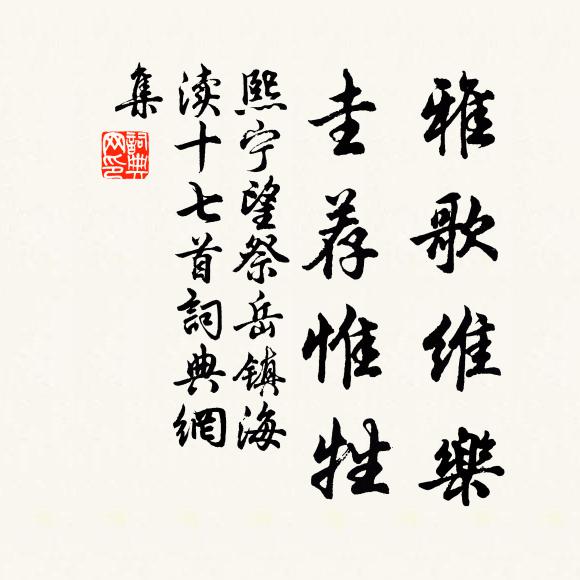 雅歌維樂
圭荐惟牲
熙宁望祭岳镇海
渎十七首詞典網
集
詞典
网印